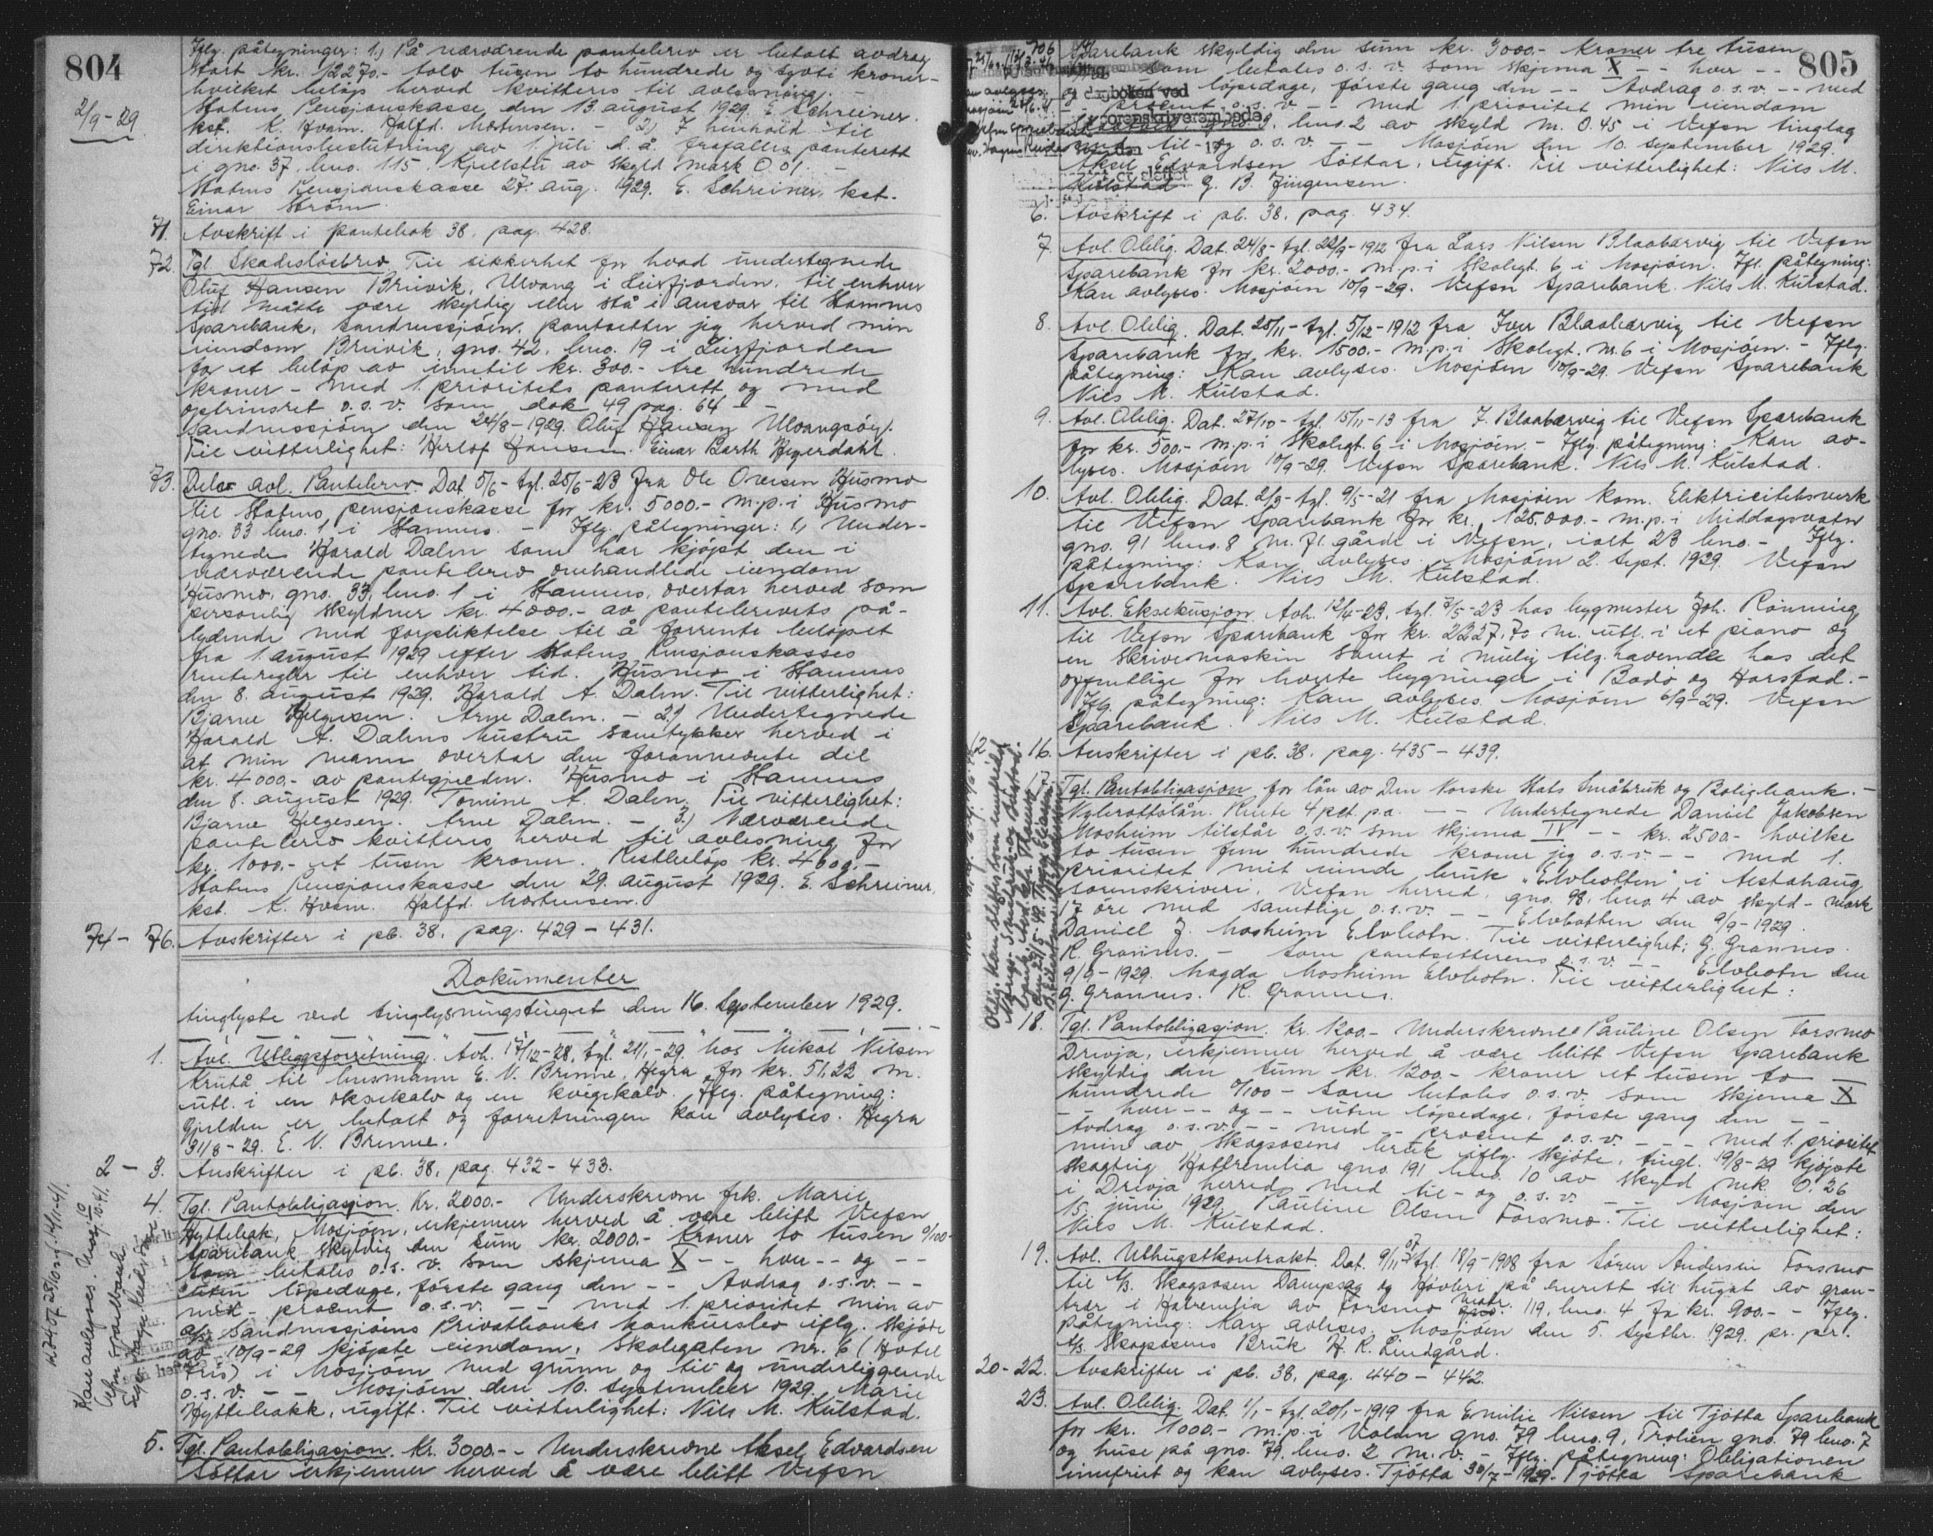 804
2/9-29
Iflg. påtegninger: 1.) På nærværende pantebrev er betalt avdrag
stort kr. 12270.- tolv tusen to hundrede og sytti kroner -
hvilket beløp herved kvitteres til avlysning. -
Statens Pensjonskasse, den 13 august 1929. E. Schreiner.
kst. K. Hvam. Halfd. Mortensen. - 2) I henhold til
direktionsbeslutning av 1. juli d.å. frafalles panterett
i gno. 37, bno. 115. av skyld mark 0.01. -
Statens Pensjonskasse 27. aug. 1929. E. Schreiner, kst.
Einar Strøm.
71. Avskrift i pantebok 38. pag. 428.
72. Tgl. Skadesløsbrev. Til sikkerhet for hvad undertegnede
Oluf Hansen Brevik, Ulvang i Leirfjorden, til enhver
tid måtte være skyldig eller stå i ansvar til Stamnes
Sparebank, Sandnessjøen, pantsetter jeg herved min
eiendom Breivik, gno. 42, bno. 19 i Leirfjorden
for et beløp av inntil kr. 300.- tre hundrede
kroner - med 1. prioritets panterett og med
optrinsret o.s.v. som dok 49 pag. 64 - -
Sandnessjøen den 24/8-1929. Oluf Hansen Ulvangsøy.
Til vitterlighet: Herlof Hansen. Einar Barth Hegerdahl.
73. Delv. avl. Pantebrev. Dat. 5/6- tgl. 25/6-23 fra Ole Oversen Husmo
til Statens pensjonskasse for kr. 5000.- m.p. i Husmo
gno. 33 bno. 1 i Stamnes. - Iflg. påtegninger: 1.) Under-
tegnede Harald Dalen som har kjøpt den i
nærværende pantebrev omhandlede eiendom
Husmo, gno. 33, bno. 1 i Stamnes, overtar herved som
personlig skyldner kr. 4000.- av pantebrevets på-
lydende med forpliktelse til å forrente beløpet
fra 1. august 1929 efter Statens Pensjonskasses
renteregler til enhver tid. Husmo i Stamnes
den 8. august 1929. Harald A. Dalen. Til vitterlighet:
Bjarne Helgesen. Arne Dalen. - 2.) Undertegnede
Harald A. Dalens hustru samtykker herved i
at min mann overtar den forannevnte del
kr. 4000.- av pantegjelden. Husmo i Stamnes
den 8. august 1929. Tomine A. Dalen. Til vitterlighet:
Bjarne Helgesen. Arne Dalen. - 3.) Nærværende
pantebrev kvitteres herved til avlysning for
kr. 1000.- et tusen kroner. Restbeløp kr. 4000.-
Statens Pensjonskasse den 29. august 1929. E. Schreiner,
kst. K. Hvam. Halfd. Mortensen.
74 - 76. Avskrifter i pb. 38. pag. 429 - 431.
Dokumenter
tinglyste ved tinglysningstinget den 16. September 1929.
1. Avl. Utleggsforretning. Avh. 17/12-28, tgl. 21/1-29 hos Nikol Nilsen
Krutå til husmann E. V. Brenne, Hegra for kr. 51,22 m.
utl. i en oksekalv og en kvigekalv. Iflg. påtegning:
Gjelden er betalt og forretningen kan avlyses. Hegra
31/8-29. E. V. Brenne.
2 - 3. Avskrifter i pb. 38, pag. 432 - 433.
4. Tgl. Pantobligasjon. Kr. 2000.- Underskrevne frk. Marie
Hyttebak, Mosjøen, erkjenner herved å være blitt Vefsn
Sparebank skyldig den sum kr. 2000.- kroner to tusen 0/100 -
som betales o.s.v. som skjema X - - hver - - og - -
uten løpedage, første gang den - - Avdrag o.s.v. - -
med - procent o.s.v. - - med 1. prioritet min av
A/S Sandnessjøens Privatbanks konkursbo iflg. skjøte
av 10/9-29 kjøpte eiendom, Skolegaten nr. 6 (Hotel
) i Mosjøen med grunn og til og underliggende
o.s.v. - - Mosjøen den 10. September 1929. Marie
Hyttebakk, ugift. Til vitterlighet: Nils M. Kulstad.
5. Tgl. Pantobligasjon. Kr. 3000.- - Underskrevne Aksel Edvardsen
Søttar erkjenner herved å være blitt Vefsn
805
Sparebank skyldig den sum kr. 3000.- kroner tre tusen
- som betales o.s.v. som skjema X - - hver - -
løpedage, første gang den - - Avdrag o.s.v. - - med
- procent o.s.v. - - med 1. prioritet min eiendom
gno. 9, bno. 2 av skyld m. 0.45 i Vefsn tinglag
med til og o.s.v. - - Mosjøen den 10. September 1929.
Aksel Edvardsen Søttar, ugift. Til vitterlighet: Nils M.
Kulstad G. B. Jürgensen.
dagboken ved
sorenskriverembede
slettet
6. Avskrift i pb. 38, pag. 434.
7. Avl. Oblig. Dat. 24/8- tgl. 22/9-1912 fra Lars Nilsen Blaabærvig til Vefsn
Sparebank for kr. 2000.- m.p. i Skolegt. 6 i Mosjøen. Ifl. påtegning:
Kan avlyses. Mosjøen 10/9-29. Vefsn Sparebank. Nils M. Kulstad.
8. Avl. Oblig. Dat. 25/11- tgl. 5/12-1912 fra Iver Blaabærvig til Vefsn
Sparebank for kr. 1500.- m.p. i Skolegt. nr. 6 i Mosjøen. - Iflg.
påtegning: Kan avlyses. Mosjøen 10/9-29. Vefsn Sparebank
Nils M. Kulstad.
9. Avl. Oblig. Dat. 27/10- tgl. 15/11-13 fra I. Blaabærvig til Vefsn Sparebank
for kr. 500.- m.p. i Skolegt. 6 i Mosjøen - Iflg. påtegning: Kan av-
lyses. Mosjøen 10/9-29. Vefsn Sparebank. Nils M. Kulstad.
10. Avl. Oblig. Dat. 2/3- tgl. 9/5-21 fra Mosjøen kom. Elektricitetsverk
til Vefsn Sparebank for kr. 125.000.- m.p. i Middagsvatn
gno. 91 bno. 8 m.fl. gårde i Vefsn, ialt 23 bno. - Iflg.
påtegning: Kan avlyses. Mosjøen 2. Sept. 1929. Vefsn
Sparebank. Nils M. Kulstad.
11. Avl. Eksekusjon. Avh. 12/4-23, tgl. 7/5-23 hos bygmester Joh. Rønning
til Vefsn Sparebank for kr. 2227.70 m. utl. i et piano og
en skrivemaskin samt i mulig tilg.havende hos det
offentlige for leverte bygninger i Bodø og Harstad. -
Iflg. påtegning: Kan avlyses. Mosjøen 6/9-29. Vefsn
Sparebank. Nils M. Kulstad.
12 - 16. Avskrifter i pb. 38. pag. 435 - 439.
17. Tgl. Pantobligasjon for lån av Den Norske Stats Småbruk og Boligbank. -
Nybrottslån. Rente 4 pct. pa. - - Undertegnede Daniel Jakobsen
Mosheim tilstår o.s.v. som skjema IV - - kr. 2500.- hvilke
to tusen fem hundrede kroner jeg o.s.v. - - med 1.
prioritet mit eiende bruk "Elvbotten" i Alstahaug
sorenskriveri, Vefsn herred, gno. 98, bno. 4 av skyld - mark
17 øre med samtlige o.s.v. - - Elvbotten den 9/9-1929.
Daniel J. Mosheim Elvbotn. Til vitterlighet: G. Grannes.
K. Grannes. - Som pantsetterens o.s.v. - - Elvbotn den
9/9-1929. Magda Mosheim Elvbotn. Til vitterlighet:
G. Grannes. K. Grannes.
18. Tgl. Pantobligasjon. kr. 1200.- Underskrevne Pauline Olsen Forsmo
Drevja, erkjenner herved å være blitt Vefsn Sparebank
skyldig den sum kr. 1200.- kroner et tusen to
hundrede 0/100 - som betales o.s.v. som skjema X
- - hver - - og - - uten løpedage, første gang den - -
Avdrag o.s.v. - - med - - procent o.s.v. - - - med 1. prioritet
min av Skogsosens bruk iflg. skjøte, tingl. 19/8-29 kjøpte
skogteig Hattremlia gno. 191 bno. 10 av skyld mk. 0.26
i Drevja herred med til- og o.s.v. - - Mosjøen den
15. juni 1929. Pauline Olsen Forsmo. Til vitterlighet:
Nils M. Kulstad.
19. Avl. Uthugstkontrakt. Dat. 9/11 07 tgl. 18/9-1908 fra Søren Andersen Forsmo
til A/S Skogsosen Dampsag og Høvleri på enerett til hugst av gran-
trær i av Forsmo matr. 119, bno. 4 for kr. 900.- - Iflg.
påtegning: Kan avlyses, Mosjøen den 5. septbr. 1929. pr. pr.
A/S Skogsosens Bruk H. R. Lindgård.
20 - 22. Avskrifter i pb. 38, pag. 440 - 442.
23. Avl. Oblig. Dat. 1/1- tgl. 20/1-1919 fra Emilie Nilsen til Tjøtta Sparebank
for kr. 1000.- m.p. i Volden gno. 79 bno. 9, Trolien gno. 79 bno. 7
og huse på gno. 79, bno. 2 m.v. - Iflg. påtegning: Obligationen
innfriet og kan avlyses. Tjøtta 30/7-1929. Tjøtta Sparebank